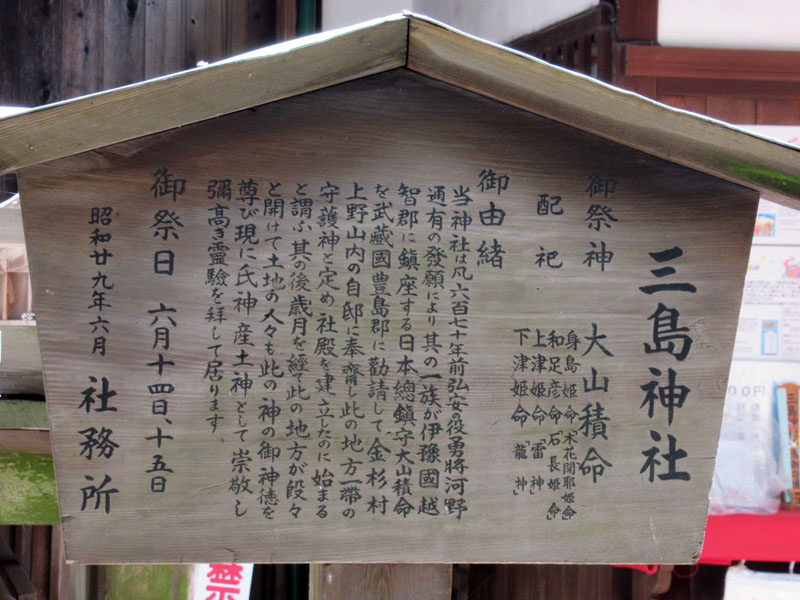 三島神社
御祭神 大山積命
配祀
身島姫命「木花開耶姫命」
和足彦命「石長姫命」
上津姫命「雷神」
下津姫命「龍神」
御由緒
当神社は凡六百七十年前弘安の役勇將河野
通有の發願により其の一族が伊豫國越
智郡に鎮座する日本總鎮守大山積命
を武藏國豊島郡に勸請して、金杉村
上野山内の自邸に奉齋し此の地方一帶の
守護神と定め社殿を建立したのに始まる
と謂ふ其の後歳月を經て此の地方が段々
と開けて土地の人々も此の神の御神徳を
尊び現に氏神産土神として崇敬し
彌高き靈驗を拜して居ります、
御祭日 六月十四日、十五日
昭和廿九年六月 社務所
三島神
禁